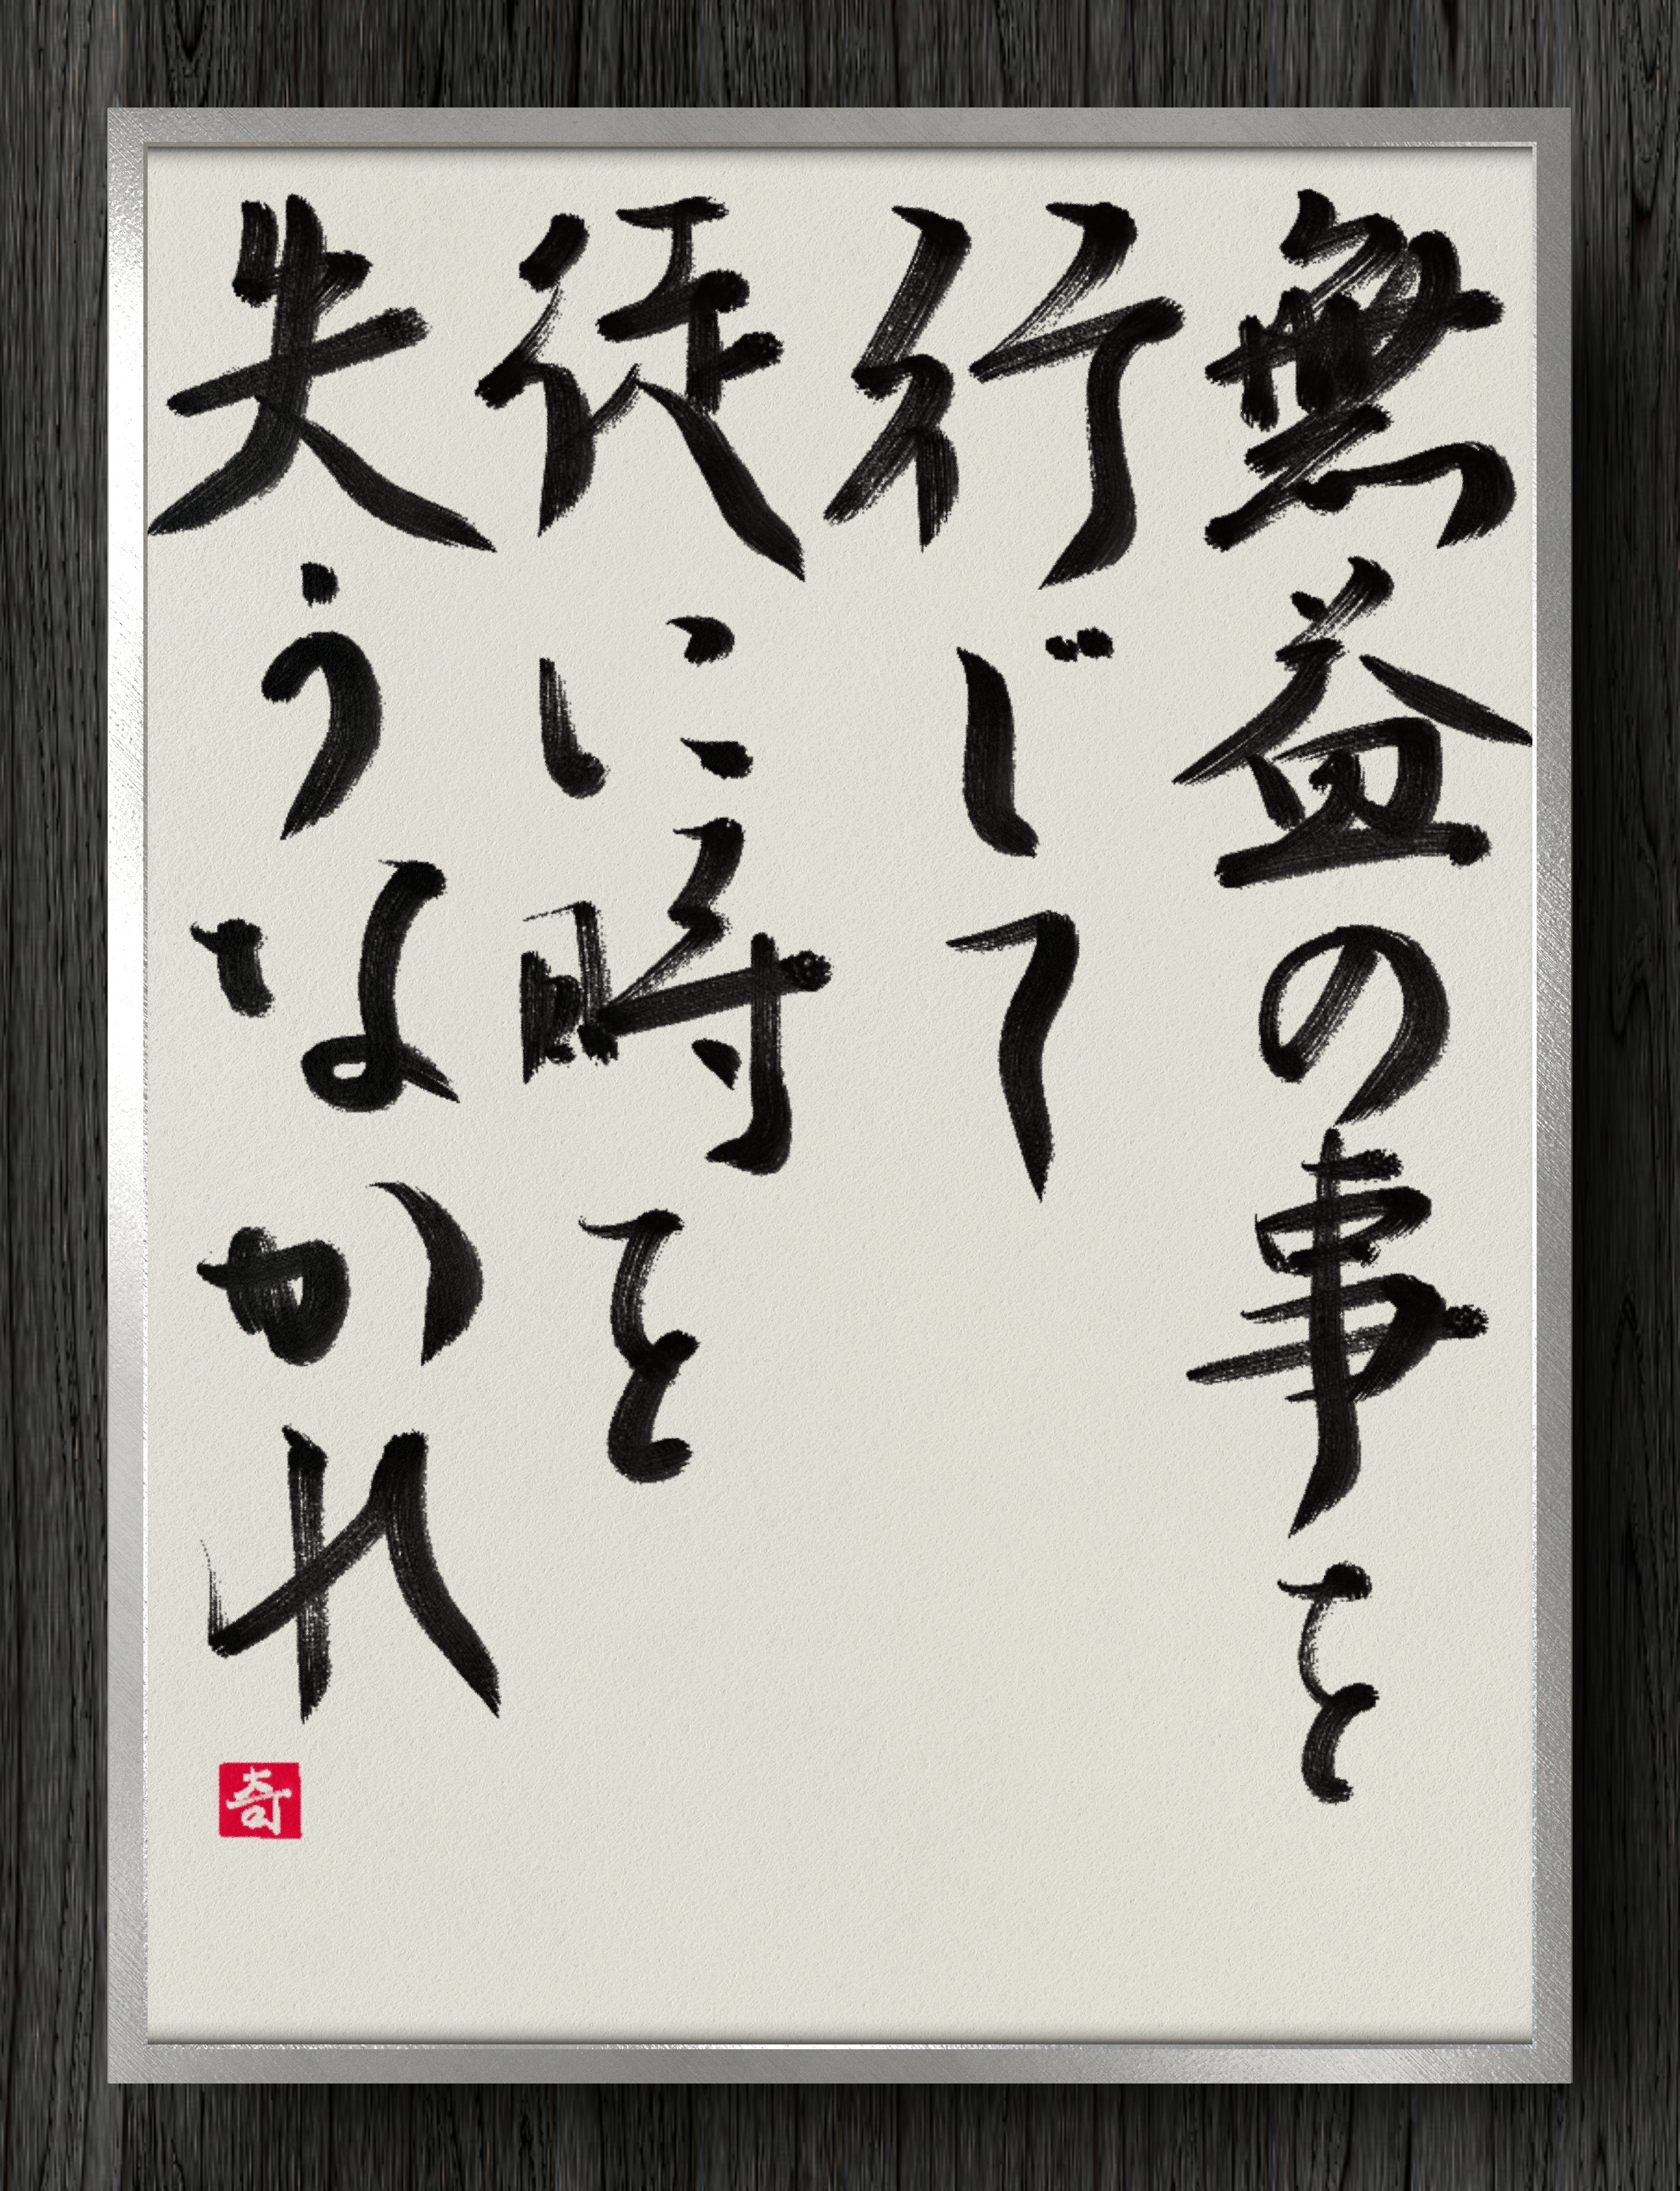 無益の事を
行じて
徒に時を
失うなかれ
奇